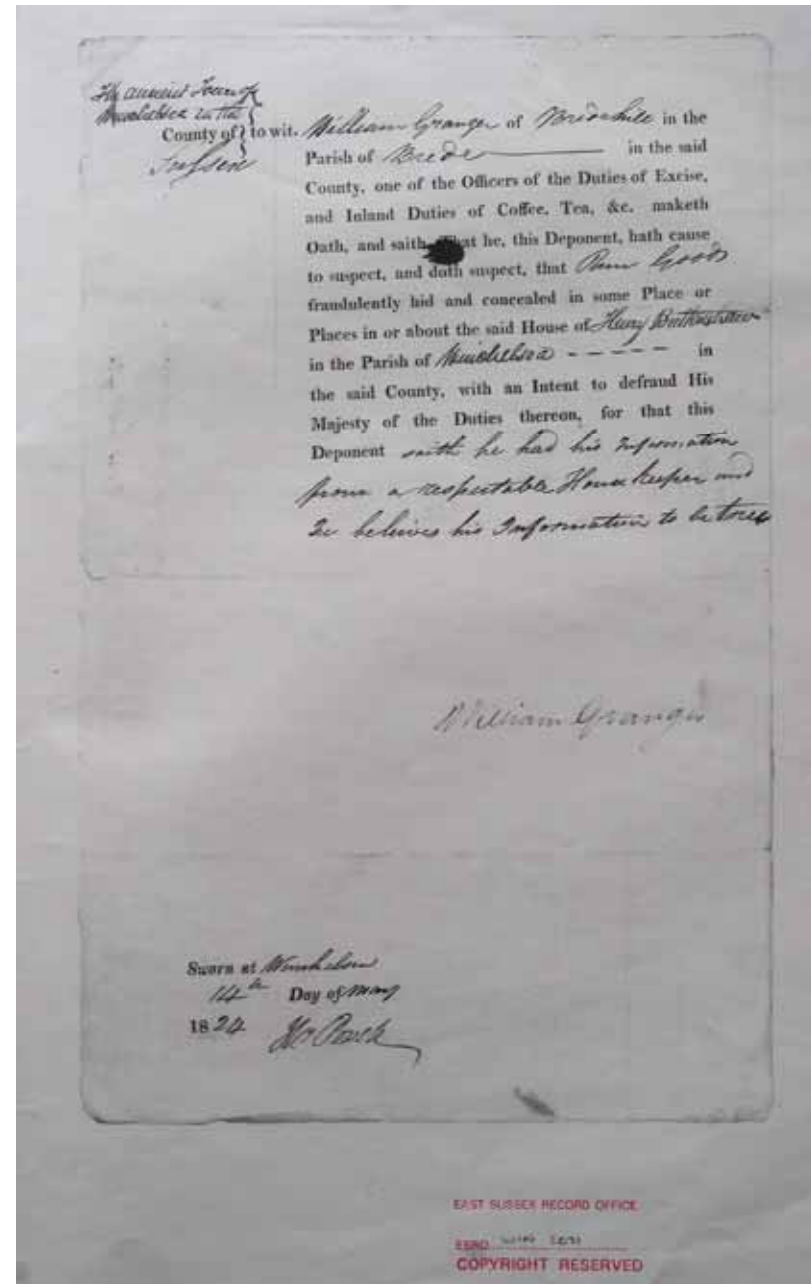 The ancient Town of
Winchelsea in the
County of } to wit. William Granger of Bredehill in the
Sussex
Parish of Brede in the said
County, one of the Officers of the Duties of Excise,
and Inland Duties of Coffee, Tea, &c. maketh
Oath, and saith, That he, this Deponent, hath cause
to suspect, and doth suspect, that Run Goods
fraudulently hid and concealed in some Place or
Places in or about the said House of Henry
in the Parish of Winchelsea - - - - - in
the said County, with an Intent to defraud His
Majesty of the Duties thereon, for that this
Deponent saith he had his Information
from a respectable House keeper and
he believes his Information to be true
William Granger
Sworn at Winchelsea
14th Day of May
1824
EAST SUSSEX RECORD OFFICE
ESRO
COPYRIGHT RESERVED